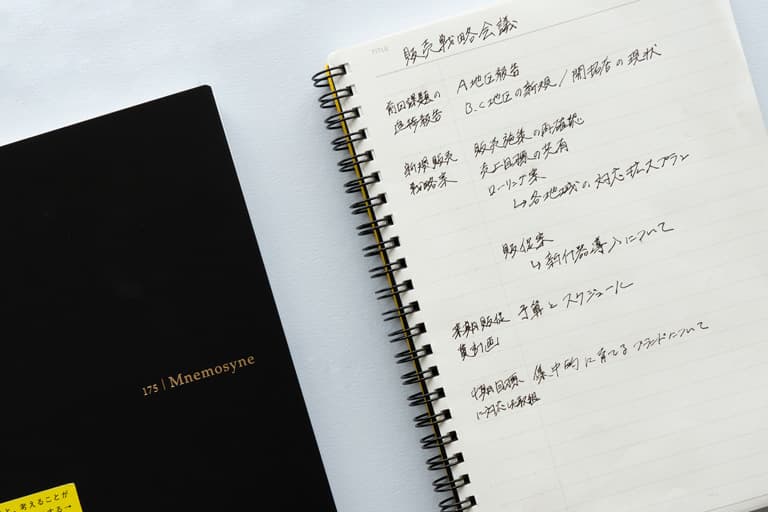 TITLE
販売戦略会議
前回課題の
進捗報告
A地区報告
B.C地区の新規/開拓店の現状
新規販売
戦略案
販売施策の再確認
売上目標の共有
ローリング案
↳各地域の対応拡大プラン
販促案
↳新什器導入について
来期販促
費計画
予算とスケジュール
中期目標
に対応した取組
集中的に育てるブランドについて
175 | Mnemosyne
考えることが
する→